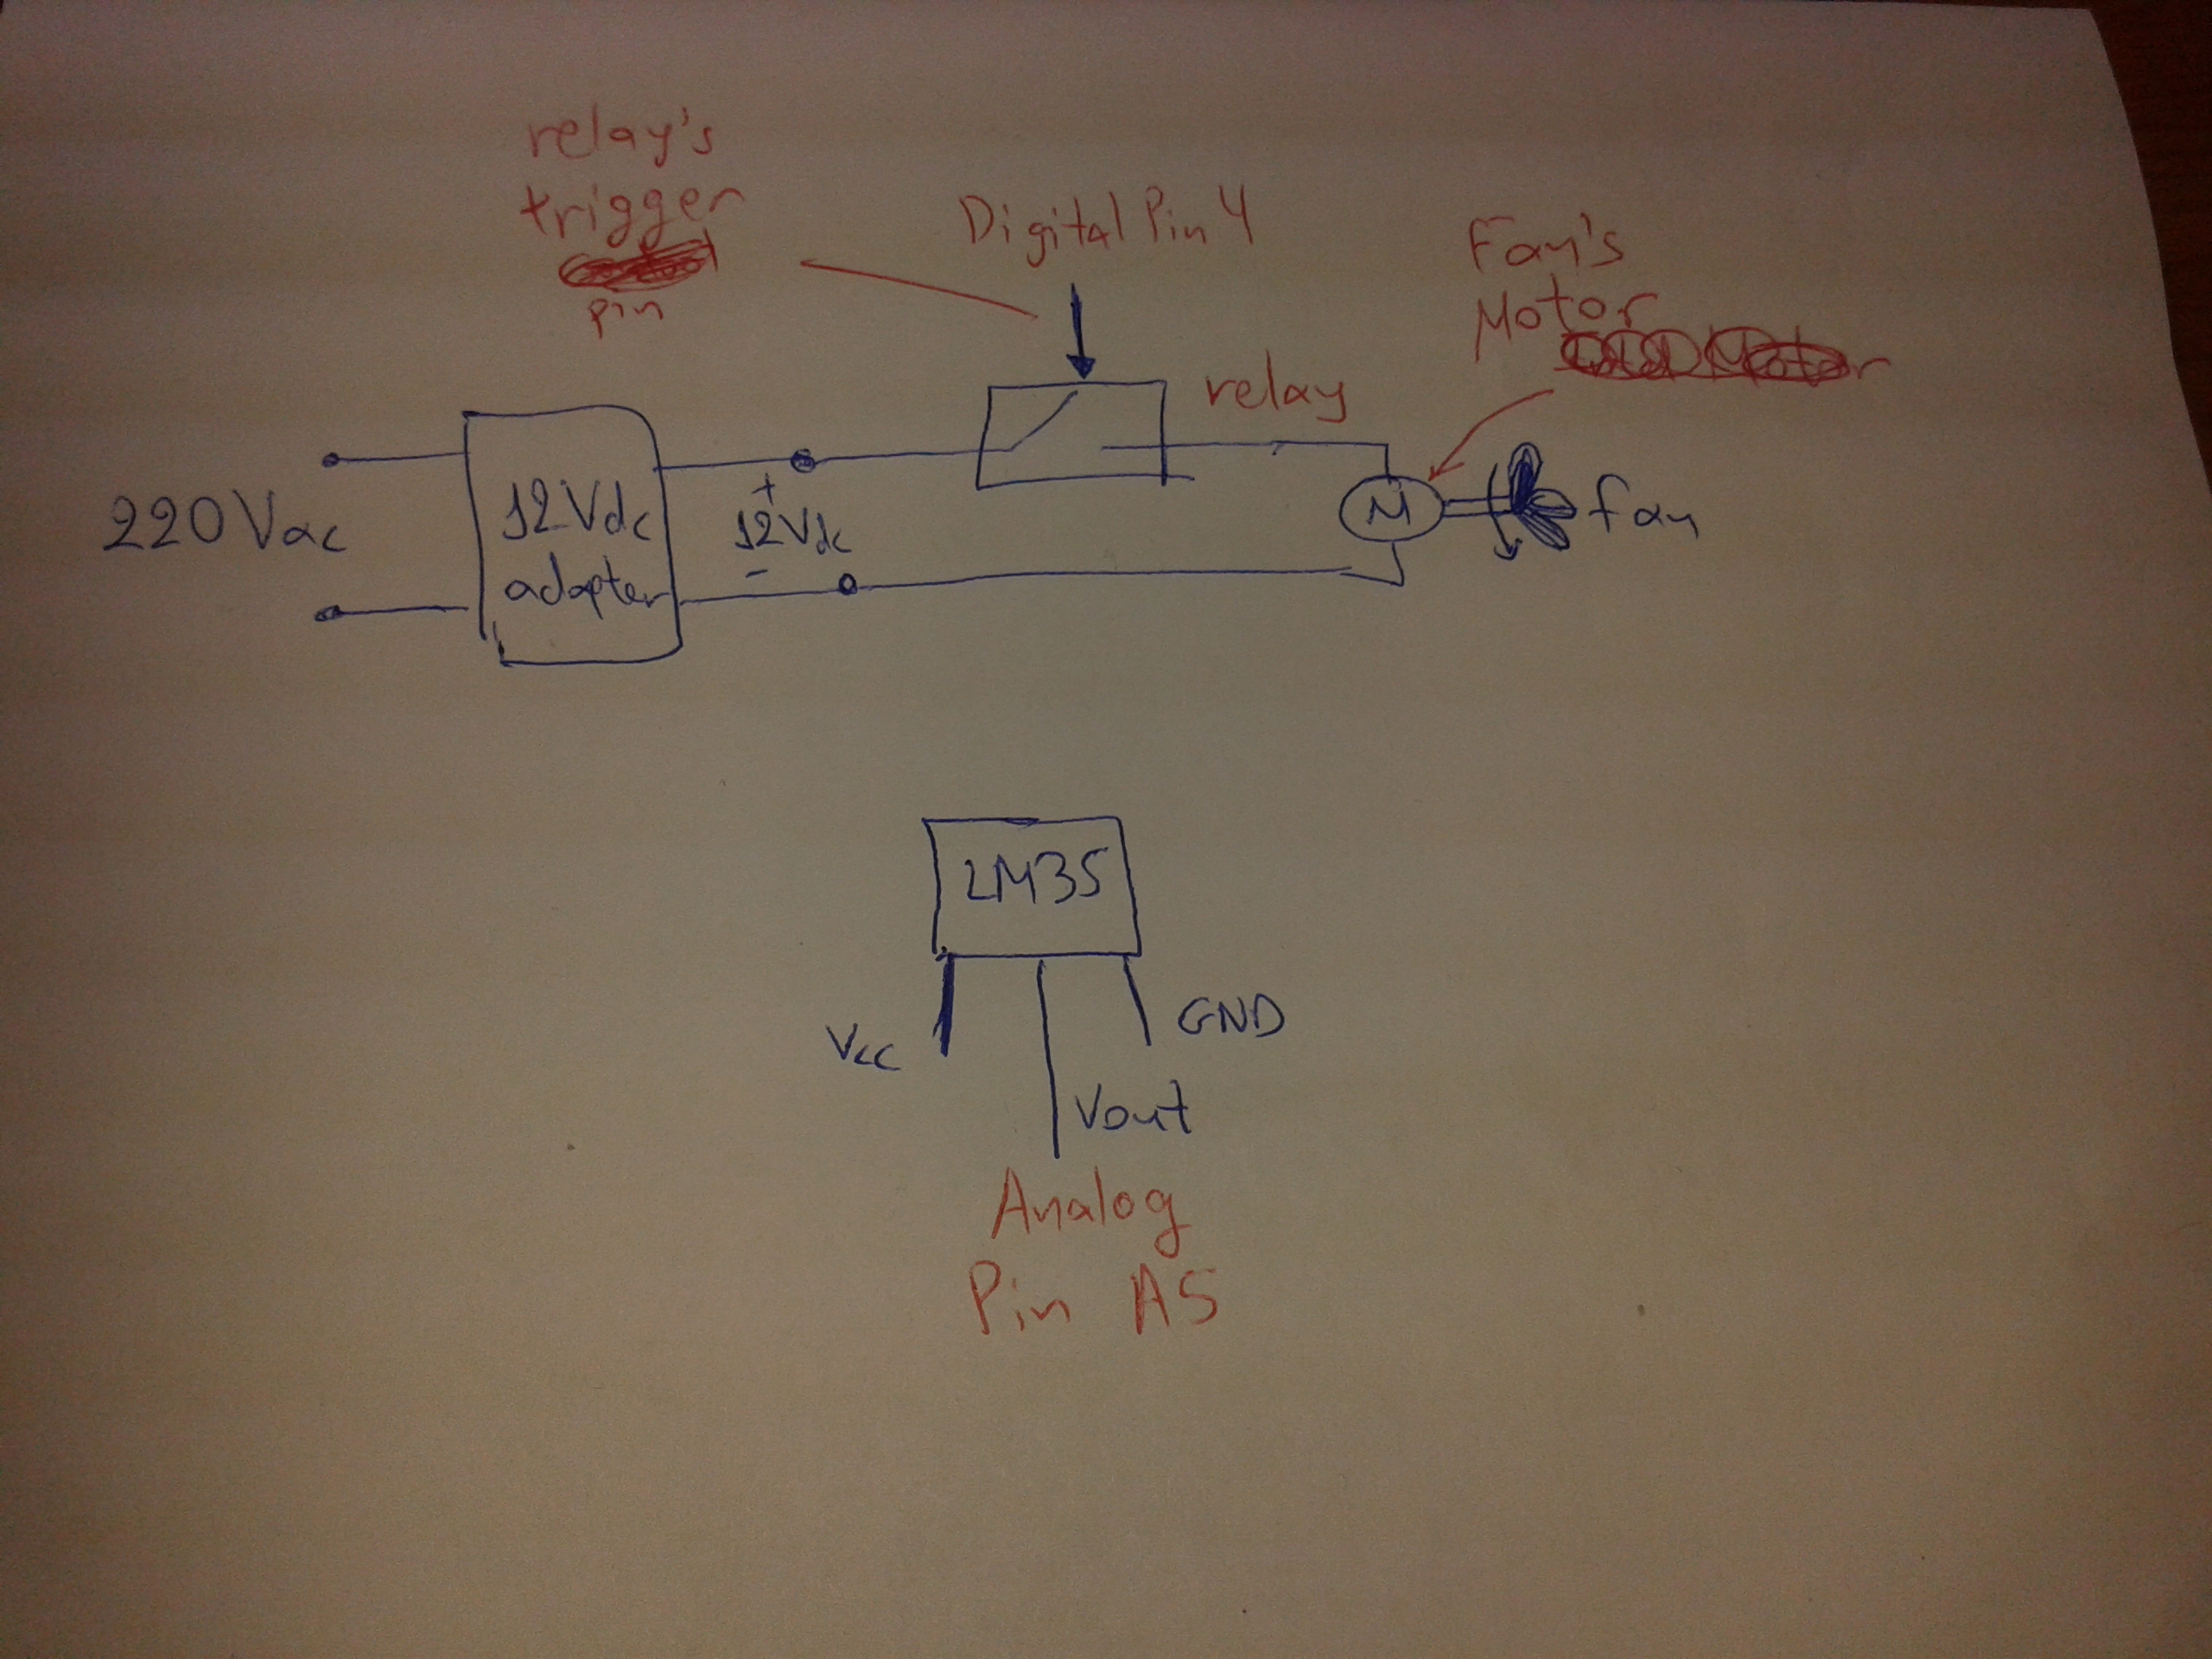 relay's
trigger
pin
Digital Pin 4
Fan's
Motor
relay
220 Vac
12Vdc
adapter
+
12Vdc
-
M
fan
LM35
Vcc
GND
Vout
Analog
Pin A5